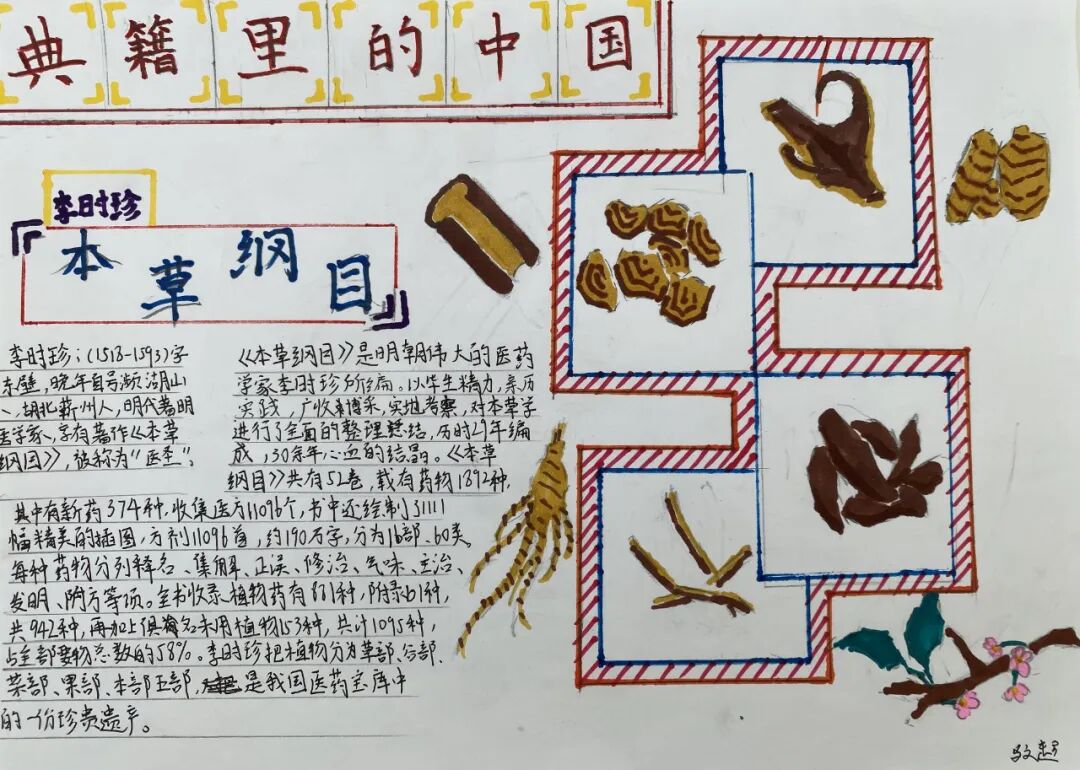 典籍里的中国
李时珍
本草纲目
李时珍:(1518-1593)字
东壁,晚年自号濒湖山
人、湖北蕲州人,明代著明
医学家、享有著作《本草
纲目》,被称为“医圣”。
《本草纲目》是明朝伟大的医药
学家李时珍所编。以毕生精力,亲历
实践,广收博采,实地考察,对本草学
进行了全面的整理总结,历时29年编
成,30余年心血的结晶。《本草
纲目》共有52卷,载有药物1892种,
其中有新药374种,收集医方11096个,书中还绘制了31111
幅精美的插图,方剂11096首,约190万字,分为16部、60类
每种药物分列释名、集解、正误、修治、气味、主治、
发明、附方等项。全书收录植物药有881种,附录61种,
共942种,再加上具名未用植物153种,共计1095种,
占全部药物总数的58%。李时珍把植物分为草部、谷部、
菜部、果部、本部五部,是我国医药宝库中
的一份珍贵遗产。